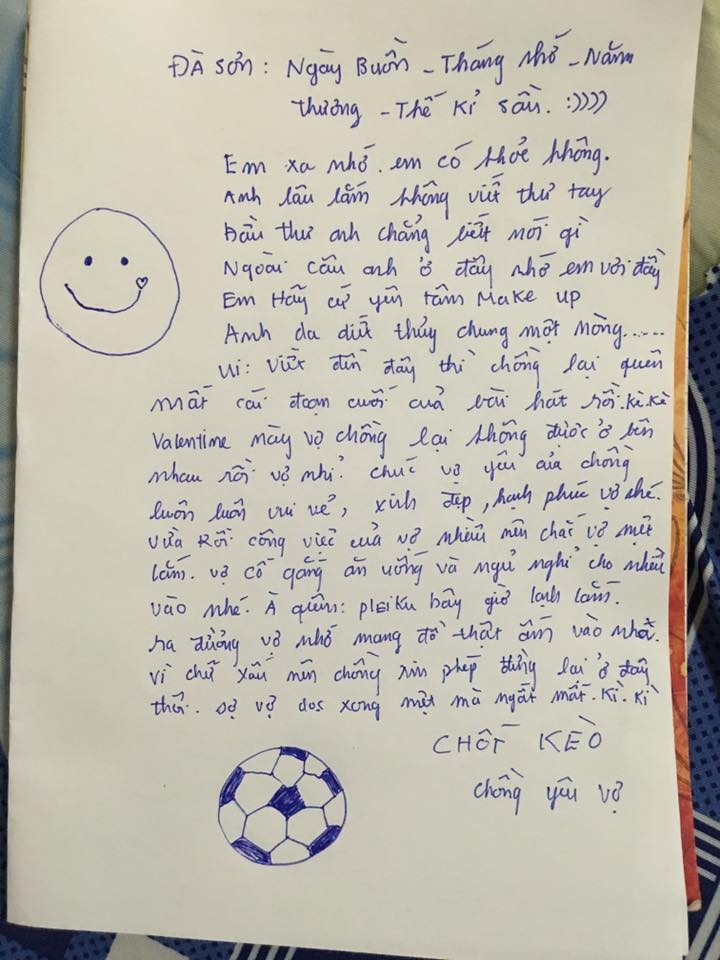 ĐÀ SƠN: Ngày Buồn - Tháng nhớ - Năm
thương - Thế kỉ sầu. :))))
Em xa nhớ. em có khỏe không.
Anh lâu lắm không viết thư tay
Đầu thư anh chẳng biết nói gì
Ngoài câu anh ở đây nhớ em với đầy
Em Hãy cứ yên tâm Make up
Anh da diết thủy chung một lòng.....
Ui: Viết đến đây thì chồng lại quên
mất cái đoạn cuối của bài hát rồi. Kì. Kì
Valentine này vợ chồng lại không được ở bên
nhau rồi vợ nhỉ? chúc vợ yêu của chồng
luôn luôn vui vẻ, xinh đẹp, hạnh phúc vợ nhé.
Vừa Rồi công việc của vợ nhiều nên chắc vợ mệt
lắm. vợ cố gắng ăn uống và ngủ nghỉ cho nhiều
vào nhé. À quên: pleiku bây giờ lạnh lắm.
ra đường vợ nhớ mang đồ thật ấm vào nhé.
vì chữ xấu nên chồng xin phép dừng lại ở đây
thôi. sợ vợ dos xong mệt mà ngất mất. Kì. Kì
CHỐT KÈO
chồng yêu vợ